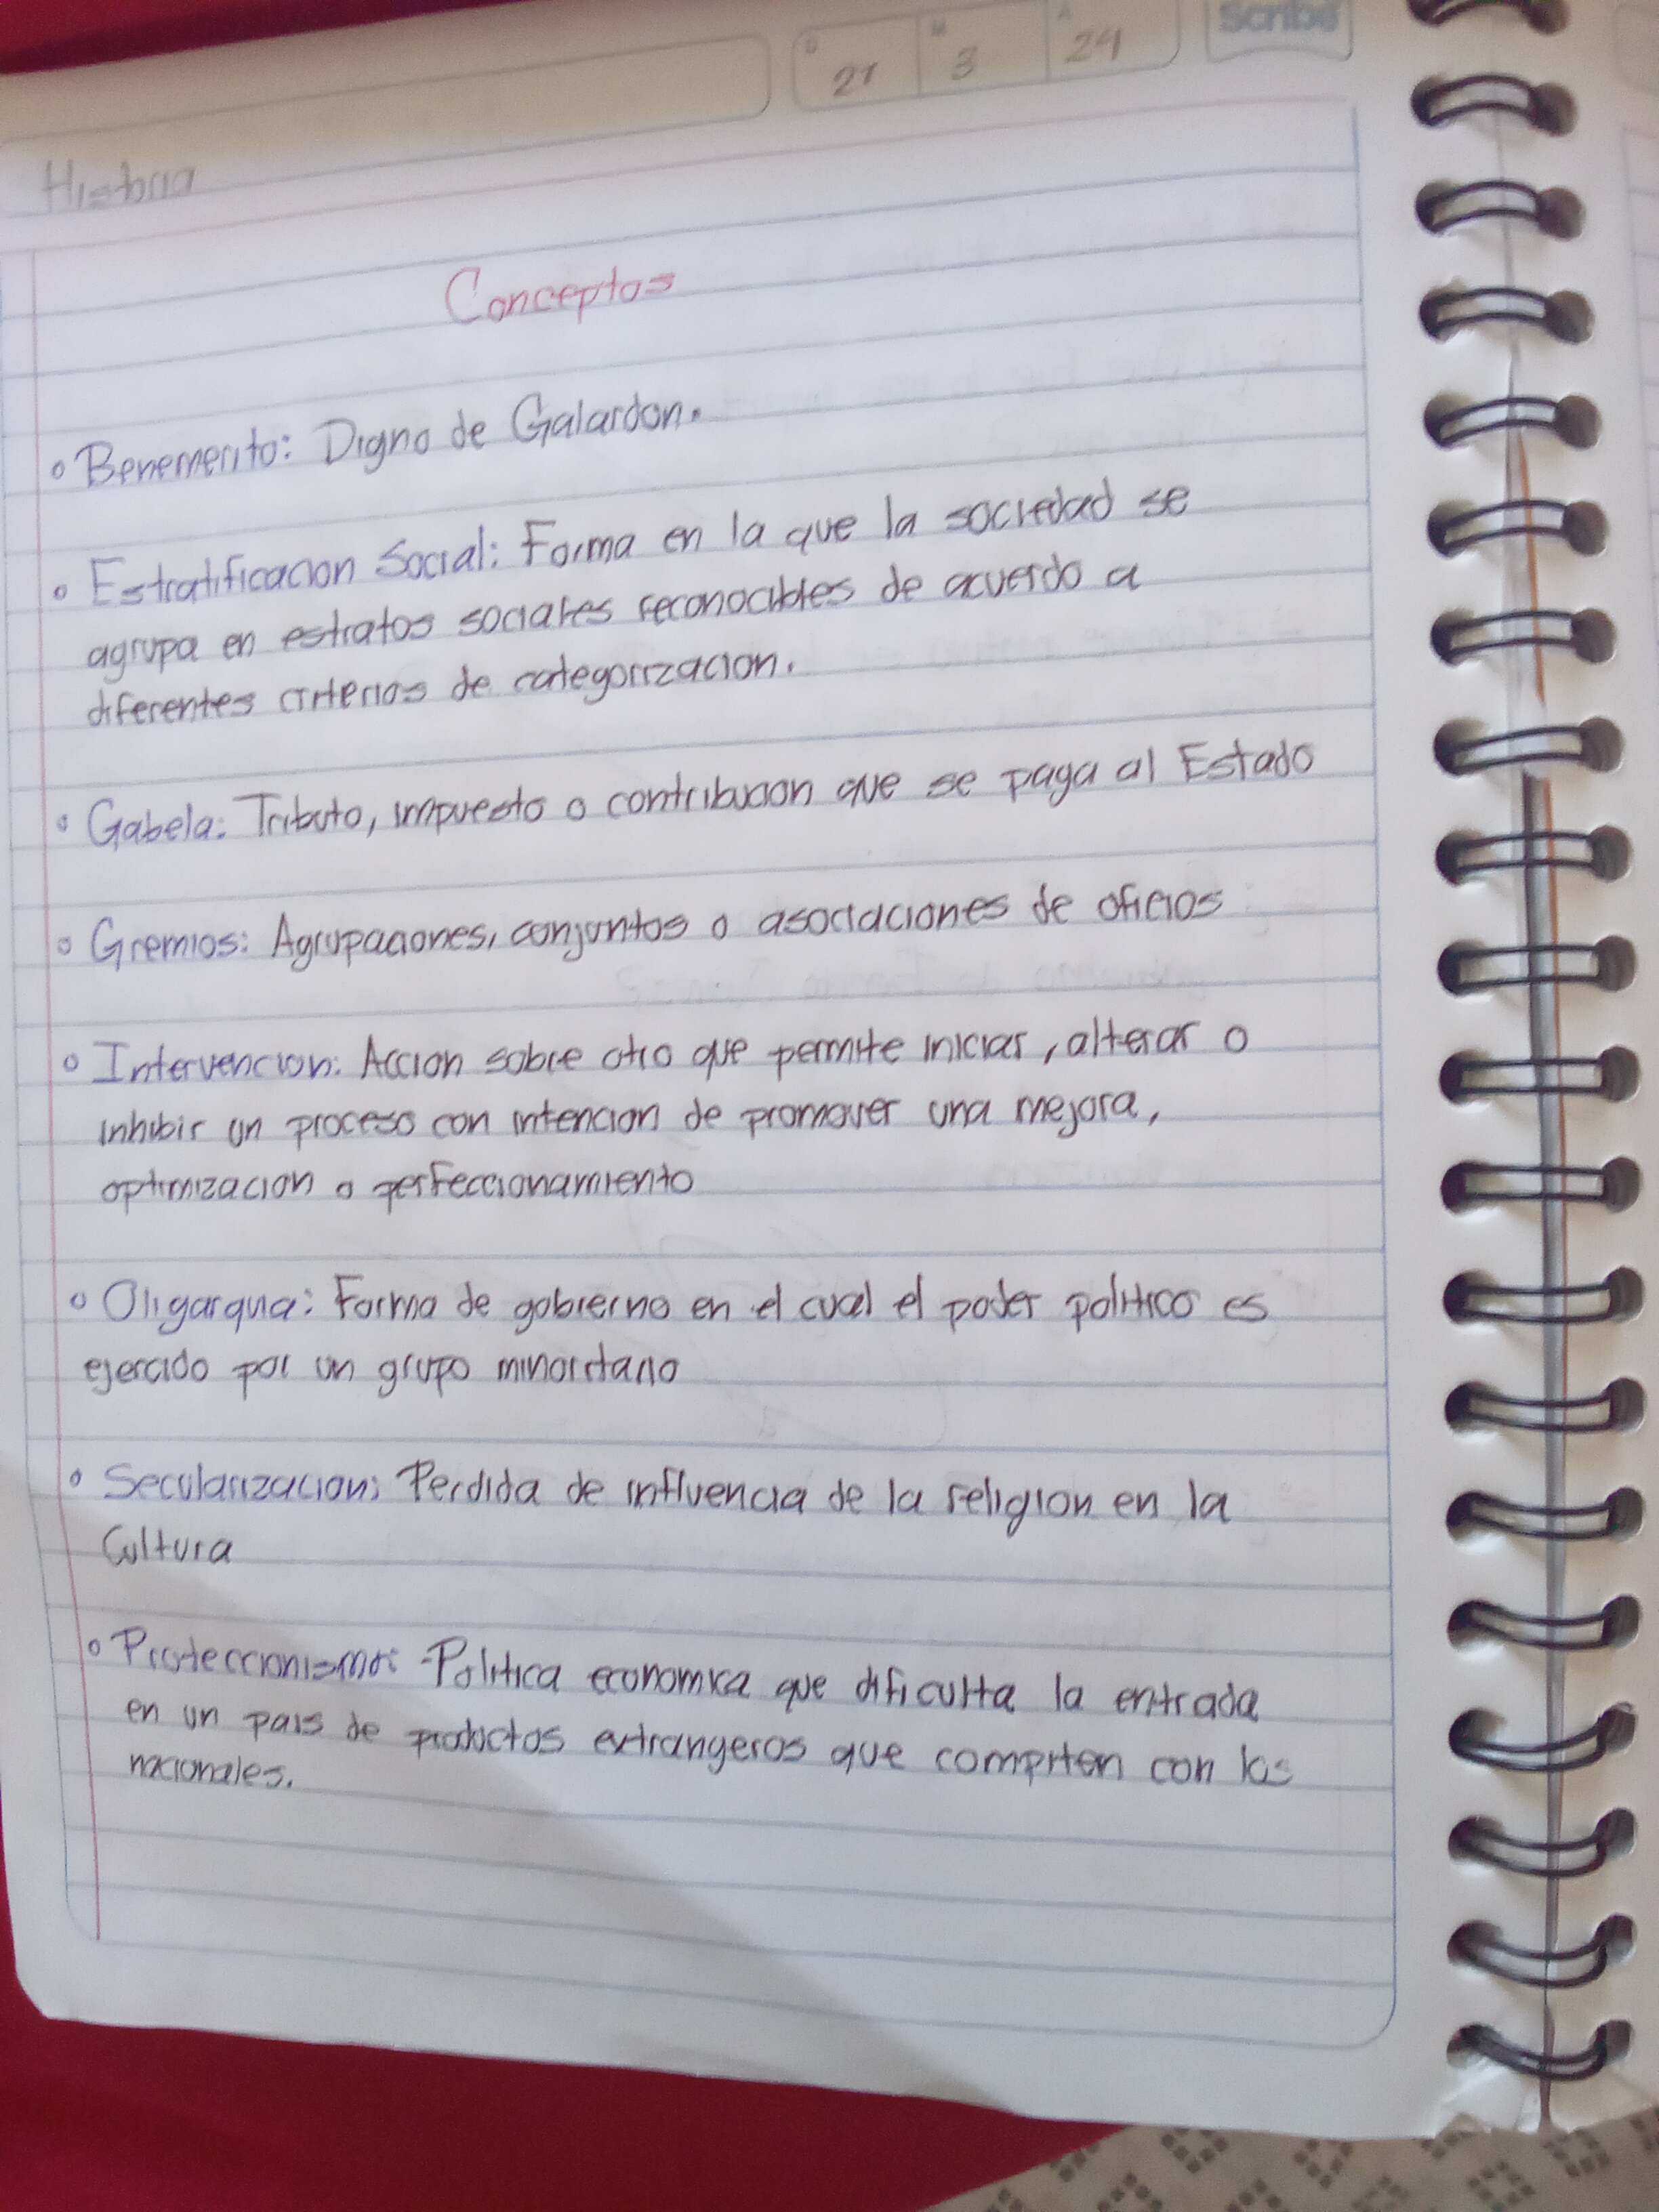 Scribe
D 21 M 3 A 24
Historia
Conceptos
Benemerito: Digno de Galardon.
Estratificacion Social: Forma en la que la sociedad se
agrupa en estratos sociales reconocibles de acuerdo a
diferentes criterios de categorizacion.
Gabela: Tributo, impuesto o contribucion que se paga al Estado
Gremios: Agrupaciones, conjuntos o asociaciones de oficios
Intervencion: Accion sobre otro que permite iniciar, alterar o
inhibir un proceso con intencion de promover una mejora,
optimizacion o perfeccionamiento
Oligarquia: Forma de gobierno en el cual el poder politico es
ejercido por un grupo minoritario
Secularizacion: Perdida de influencia de la religion en la
Cultura
Proteccionismo: Politica economica que dificulta la entrada
en un pais de productos extrangeros que compiten con los
nacionales.